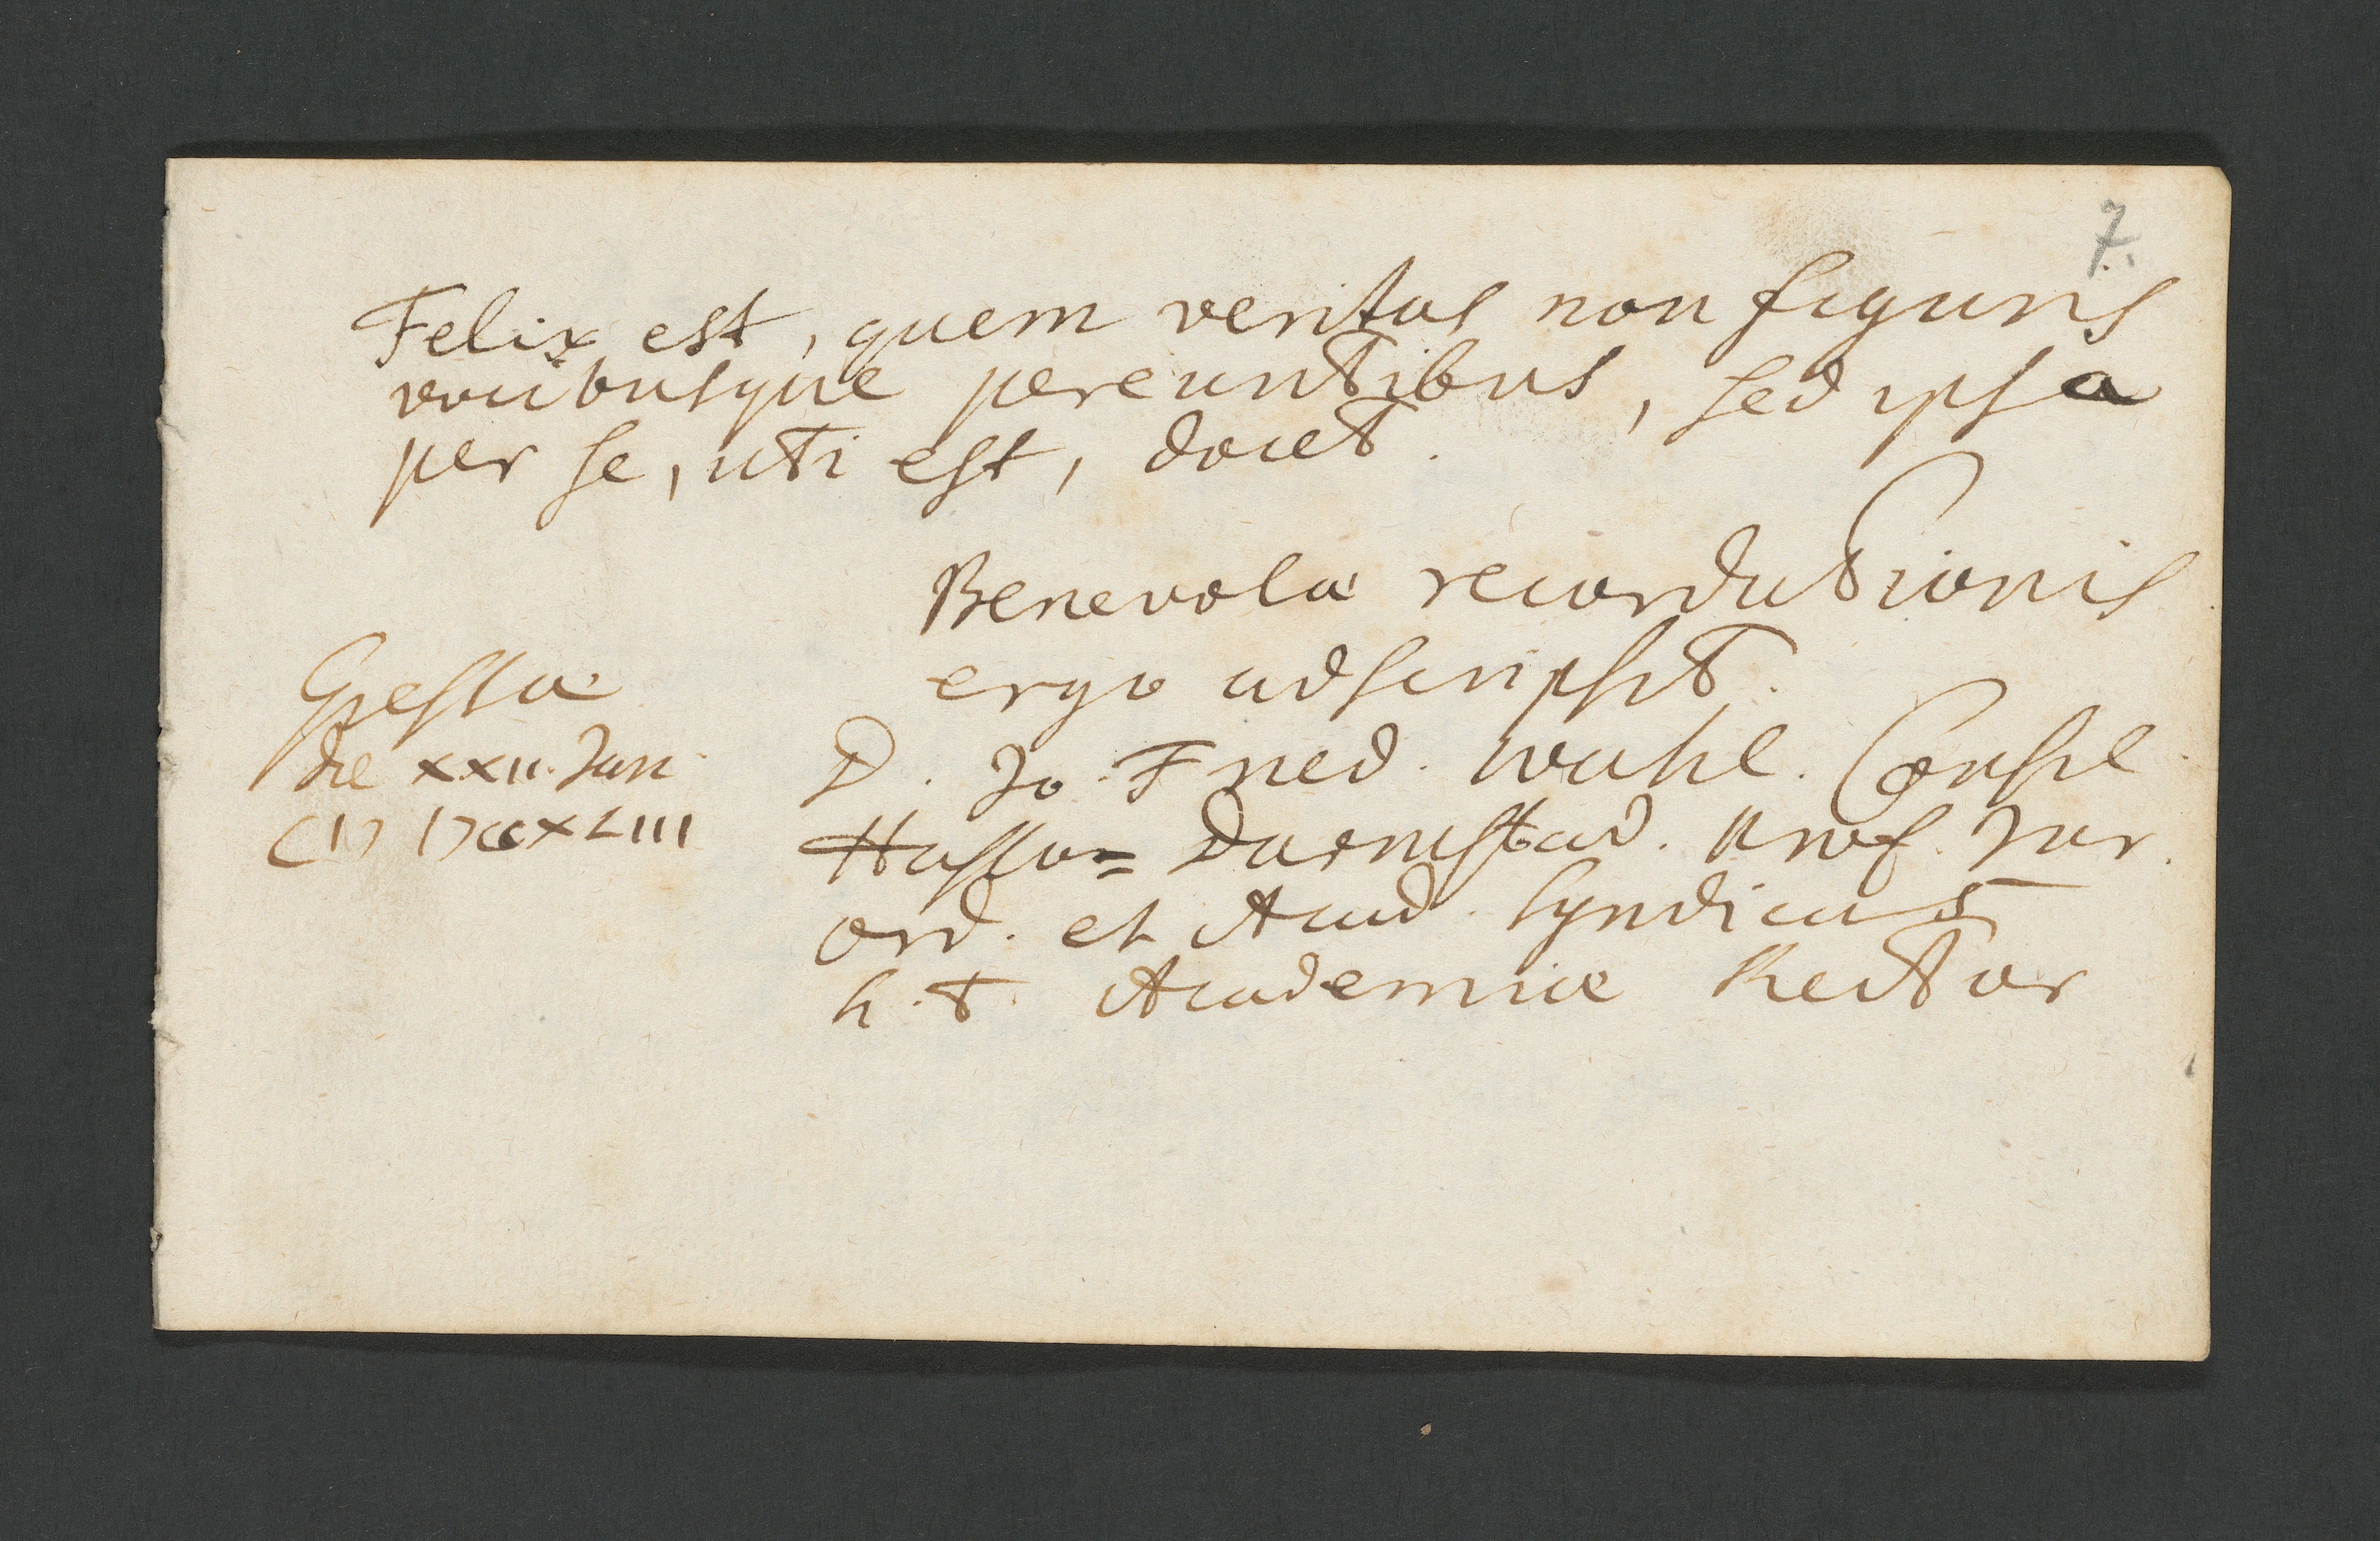 7.
Felix est, quem veritas non figuris
vocibusque pereuntibus, sed ipsa
per se, uti est, docet.
Benevolæ recordationis
ergo adscripsit.
Giessæ
die XXII. Jan.
CIↃ IↃCCXLIII
D. Jo. Fried. Wahl. Consil.
Hasso= Darmstad. Prof. Jur.
ord. et Acad. Syndicus
h. t. Academiæ Rector